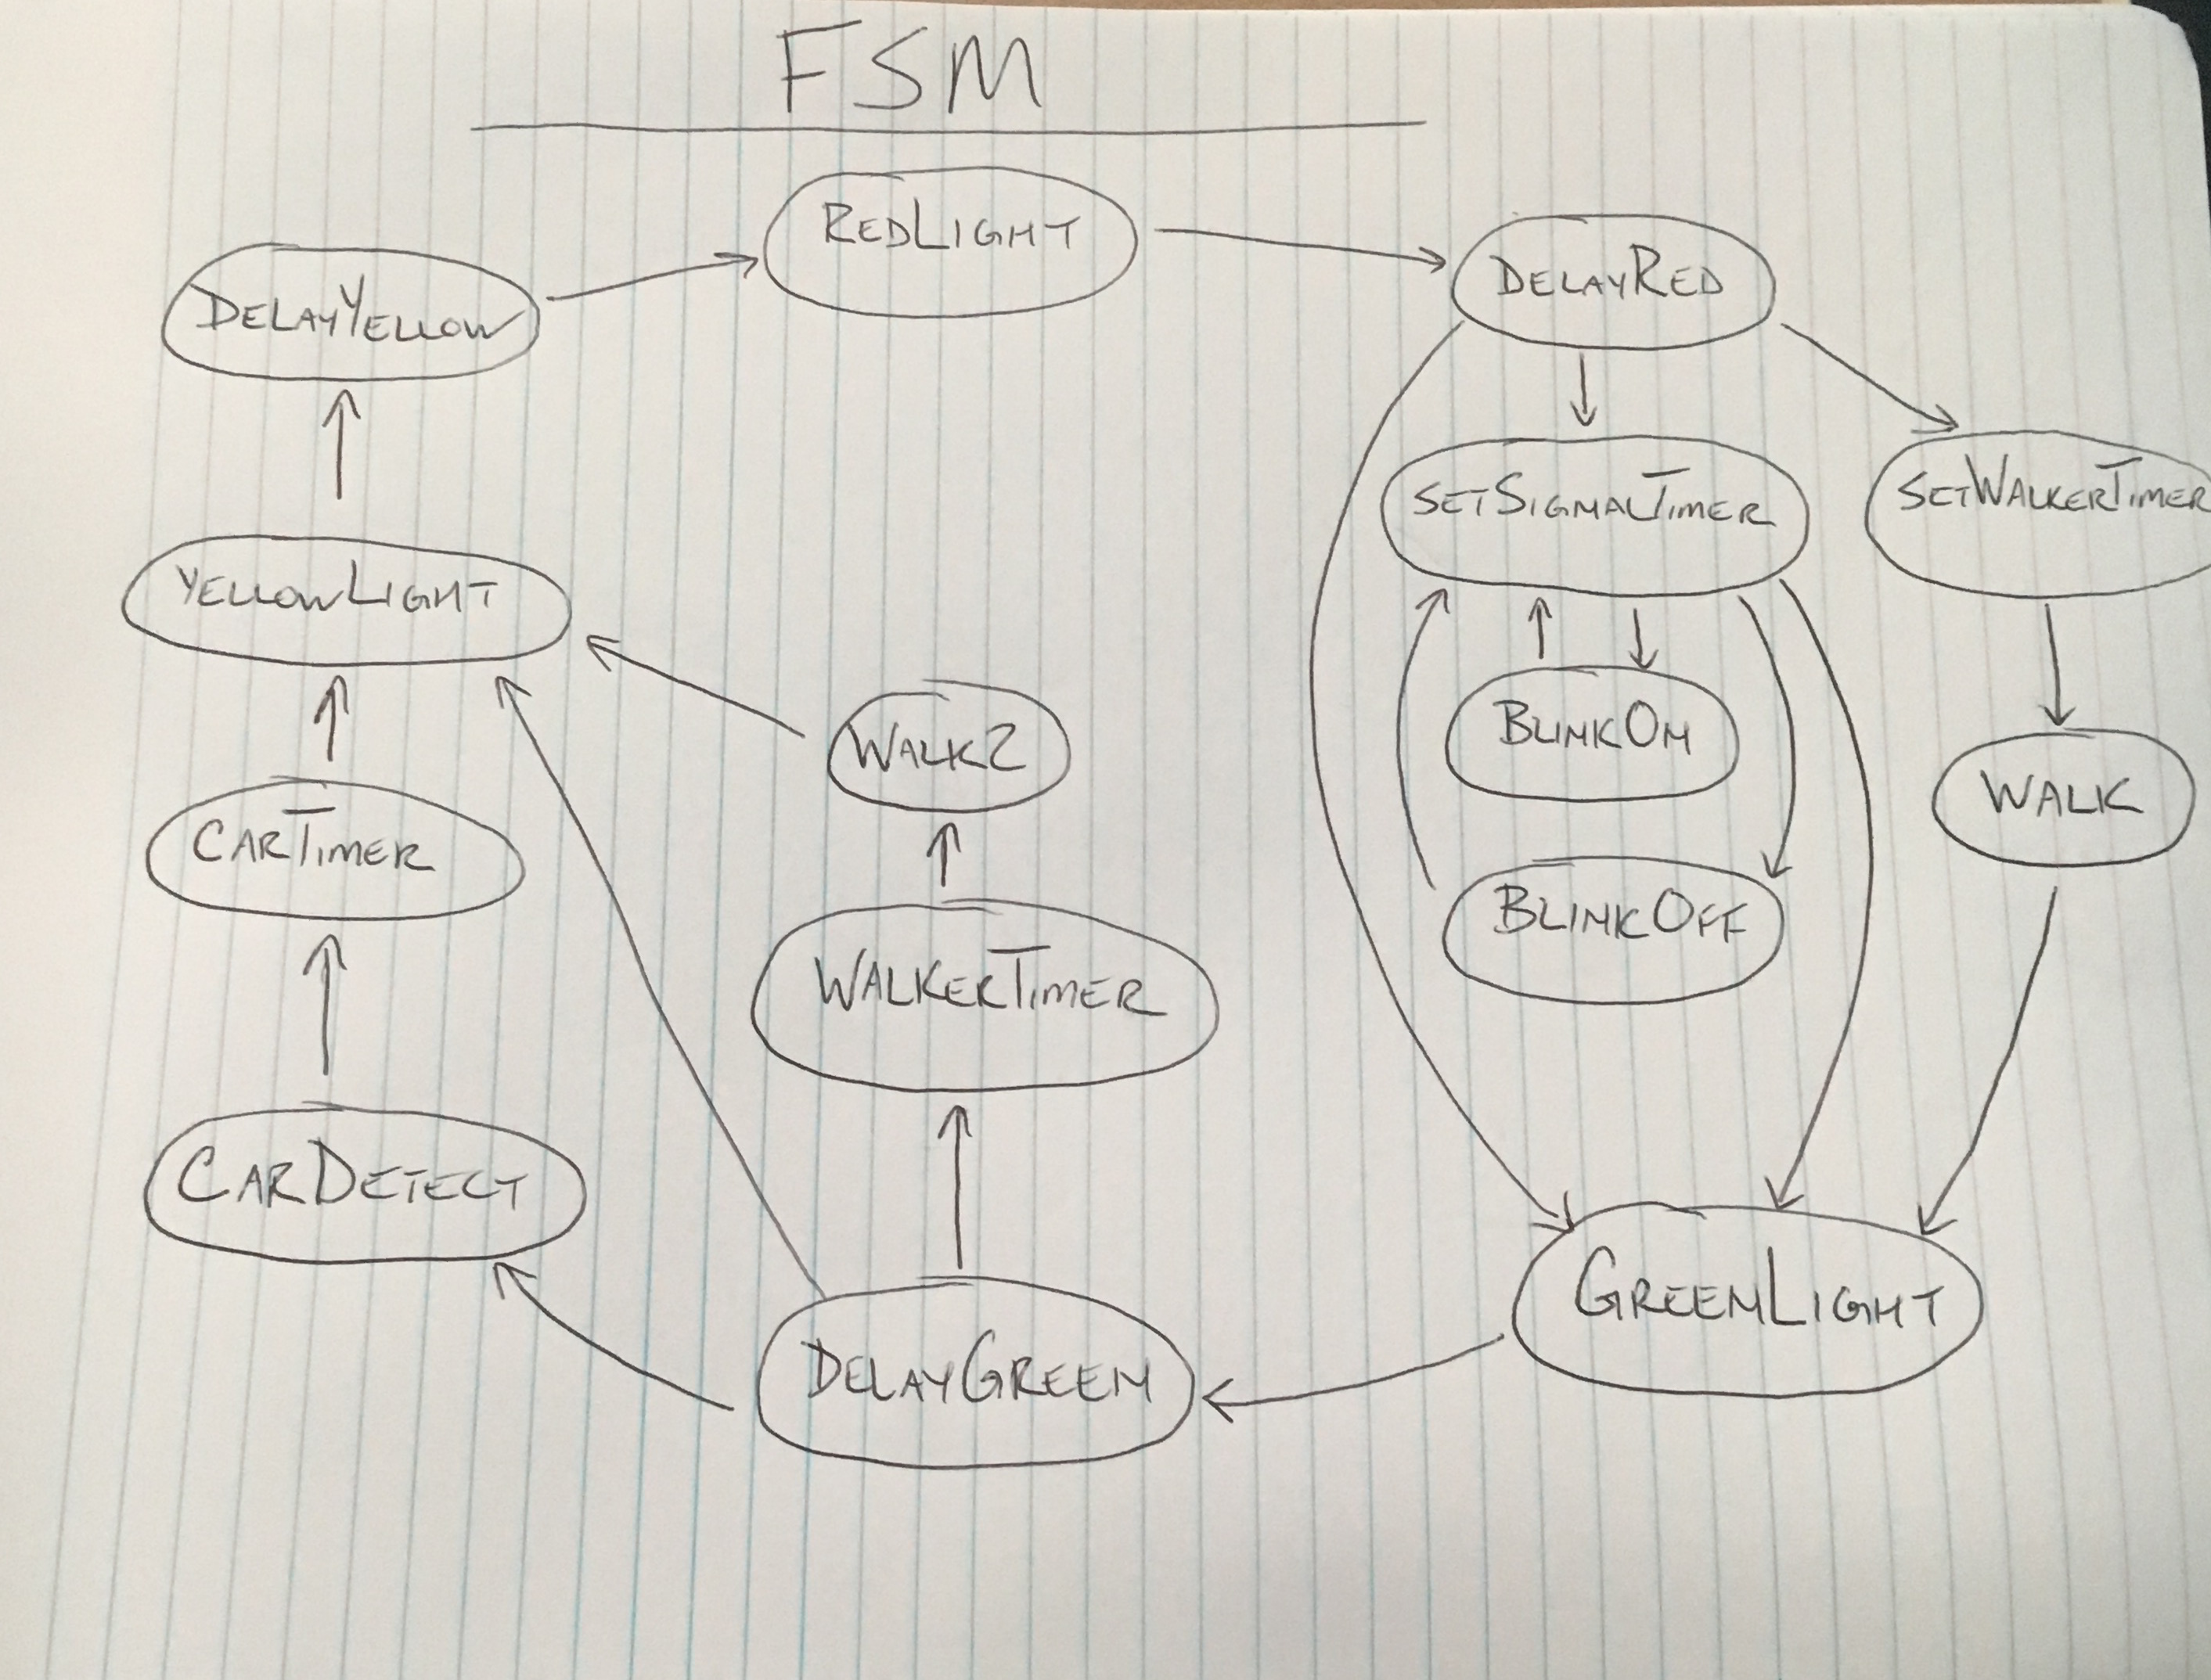 FSM
REDLIGHT
DELAYRED
DELAYYELLOW
SETSIGNALTIMER
SETWALKERTIMER
YELLOWLIGHT
WALK2
BLINKON
WALK
CARTIMER
BLINKOFF
WALKERTIMER
CARDETECT
GREENLIGHT
DELAYGREEN